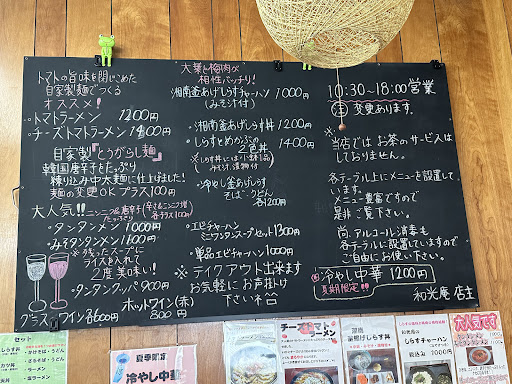 トマトの旨味を閉じこめた
自家製麺でつくる
オススメ!
・トマトラーメン 1200円
・チーズトマトラーメン 1400円
自家製『とうがらし麺』
韓国唐辛子をたっぷり
練り込み中太麺に仕上ました!
麺の変更OK プラス100円
大人気!! ニンニク&唐辛子たっぷり
・タンタンメン 1000円
・みそタンタンメン 1100円
※残ったスープに
ライスを入れて
2度美味い!
・タンタンクッパ 900円
グラスワイン
ホットワイン(赤)
800円
大葉と梅肉が
相性バッチリ!
湘南釜あげしらすチャーハン 1000円
(みそ汁付)
・湘南釜あげしらす丼 1200円
・しらすとめかぶの2色丼 1400円
※しらす丼には小鉢1品
みそ汁、漬物付
・冷やし釜あげしらす
そば・うどん
各1200円
・エビチャーハン
ミニワンタンスープセット 1300円
・単品エビチャーハン 1000円
※テイクアウト出来ます
お気軽にお声掛け
下さいネ
10:30~18:00営業
注 変更あります。
※
当店では お茶のサービスは
しておりません。
各テーブル上にメニューを設置して
います。
メニュー豊富ですので
是非ご覧下さい。
尚、アルコール消毒も
各テーブルに設置していますので
ご自由にお使い下さい。
冷やし中華 1200円
夏期限定!!
和光庵 店主
セット
夏季限定
冷やし中華
チーズトマトラーメン
湘南
釜揚げしらす丼
しらすチャーハン
1000円
大人気です